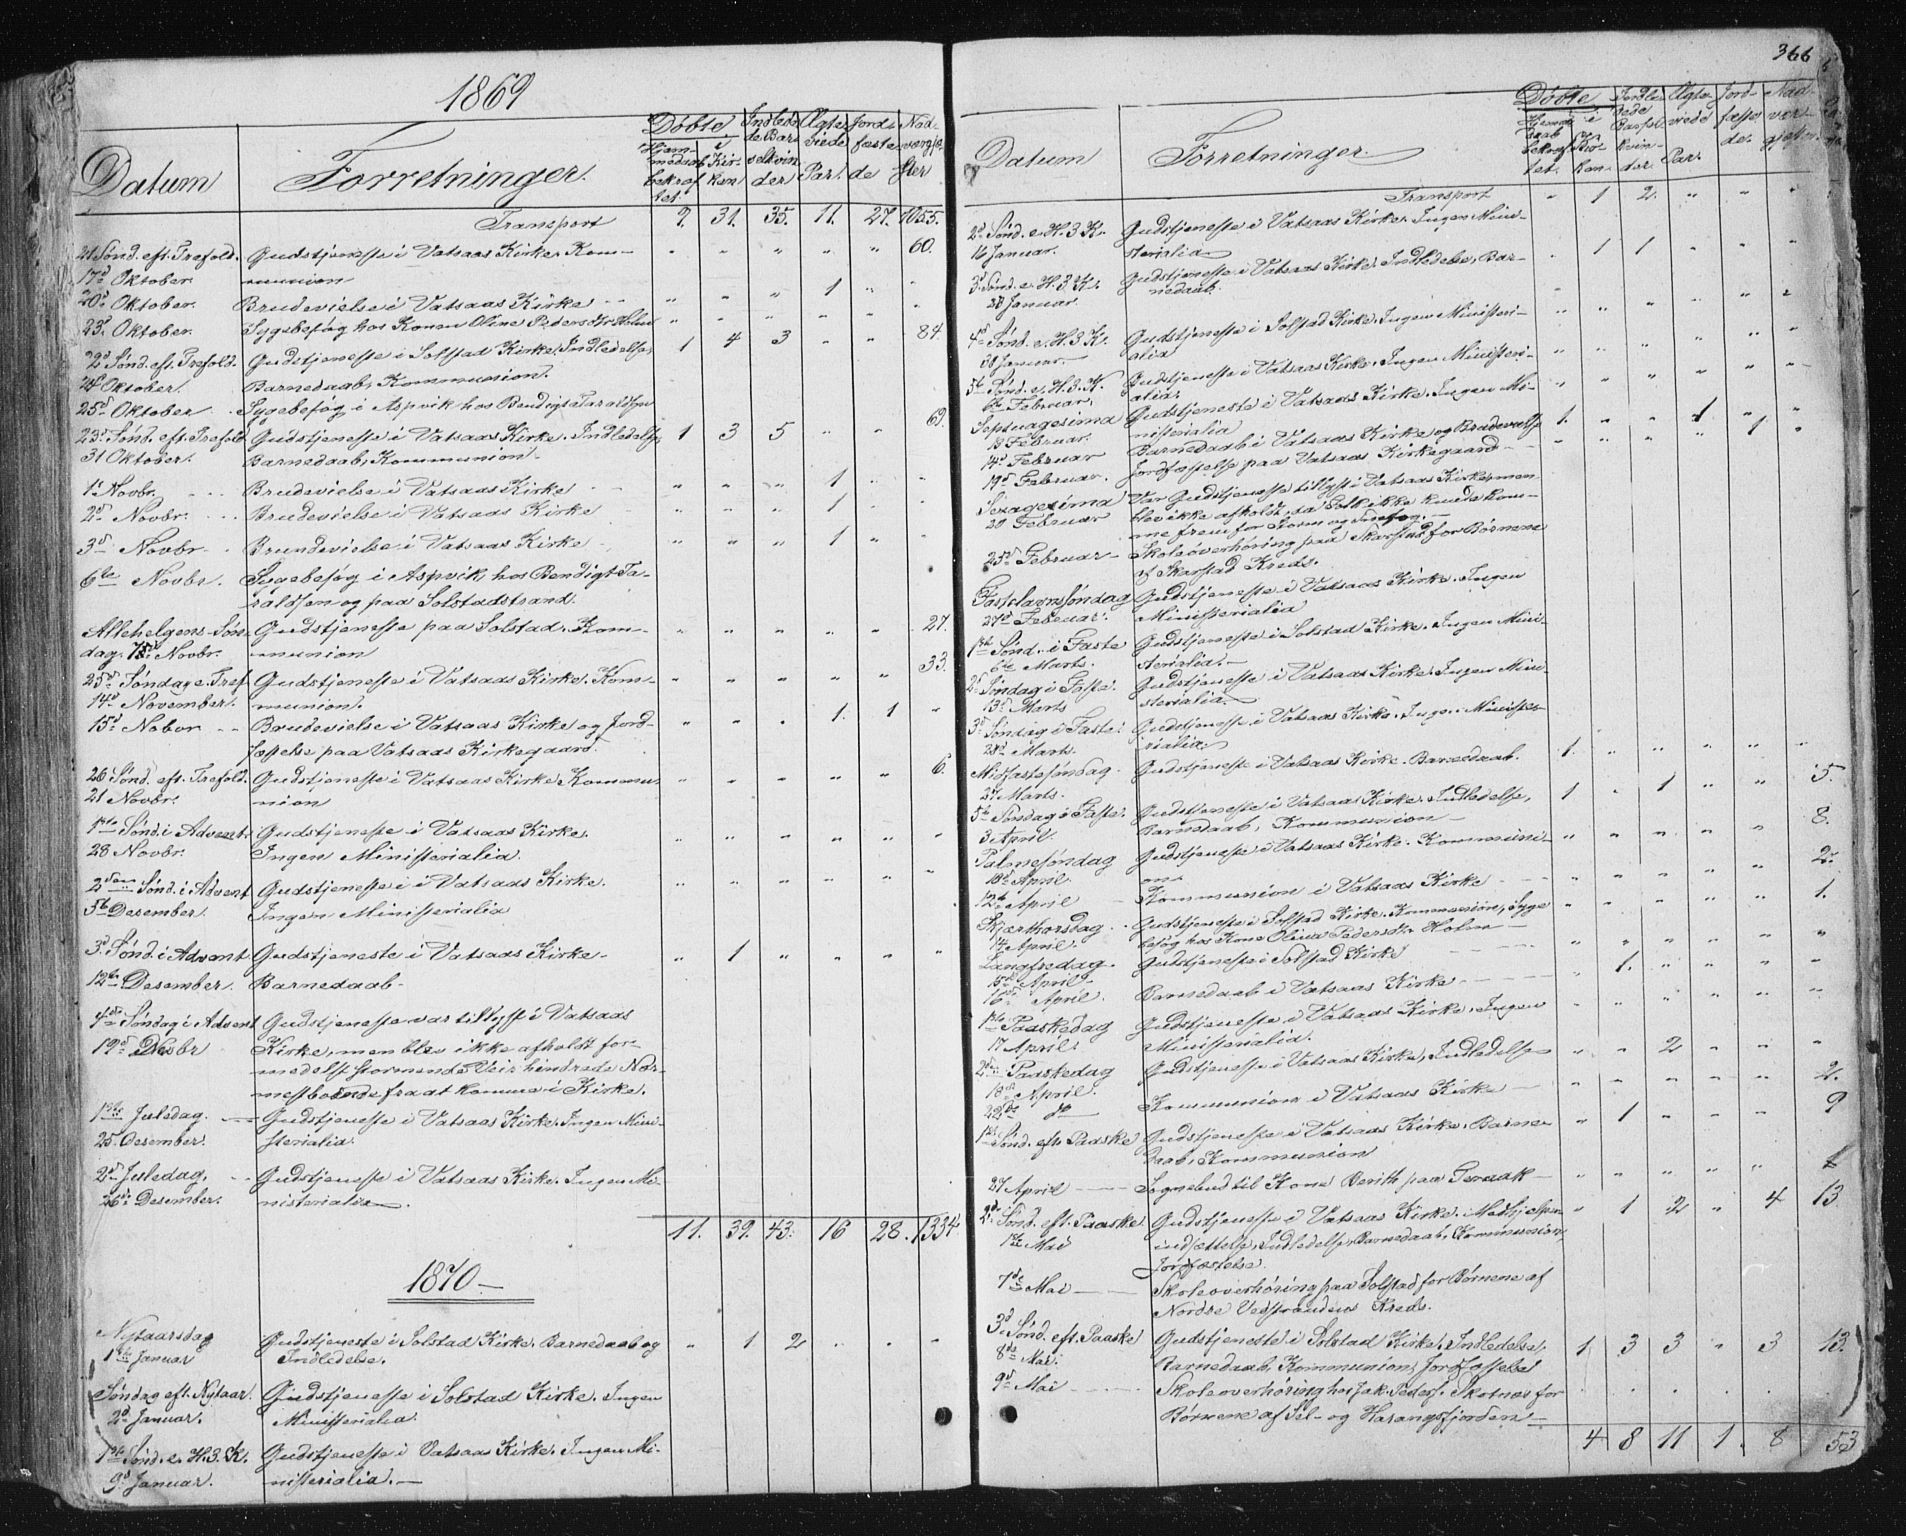 1869
Datum Forretninger. Døbte Hjemmedaab bekræftet i Kirken Indledede Barselkvinder Ægteviede Par. Jordfæstede Nadvergjester
Transport 9. 31. 35. 11. 27. 1055.
21 Sønd. eft. Trefold. Gudstjeneste i Vatsaas Kirke. Kom- " " " " " 60.
17d Oktober. munion
20d Oktober. Brudevielse i Vatsaas Kirke " " " 1 " "
23d Oktober. Sygebesøg hos Konen Oline Pedersdtr Holm " " " " " "
22d Sønd. eft. Trefold. Gudstjeneste i Solstad Kirke. Indledelse, 1 4 3 " " 84.
24d Oktober. Barnedaab, Kommunion.
25d Oktober Sygebesøg i Aspvik hos Bendigt Taraldsen
23d Sønd. eft. Trefold Gudstjeneste i Vatsaas Kirke. Indledelse, 1 3 5 " " 69.
31 Oktober. Barnedaab, Kommunion.
1d Novbr. Brudevielse i Vatsaas Kirke " " " 1 " "
2d Novbr. Brudevielse i Vatsaas Kirke " " " 1 " "
3d Novbr. Brundevielse i Vatsaas Kirke " " " 1 " "
6te Novbr. Sygebesøg i Aspvik hos Bendigt Ta-
raldsen og paa Solstadstrand.
Allehelgens Søn- Gudstjeneste paa Solstad. Kom- " " " " " 27.
dag. 7de Novbr. munion
25d Søndag e. Tref Gudstjeneste i Vatsaas Kirke. Kom- " " " " " 33.
14d November. munion.
15d Nobvr Brudevielse i Vatsaas Kirke og Jord- " " " 1. 1 "
fæstelse paa Vatsaas Kirkegaard.
26 Sønd. eft. Trefold. Gudstjeneste i Vatsaas Kirke. Kommu- " " " " " 6.
21 Novbr. nion
1ste Sønd. i Advent. Gudstjeneste i Vatsaas Kirke. " " " " " "
28 Novbr. Ingen Ministerialia.
2den Sønd. i Advent Gudstjeneste i i Vatsaas Kirke. " " " " " "
5te Desember. Ingen Ministerialia
3d Sønd. i Advent Gudstjeneste i Vatsaas Kirke. " 1 " " " "
12te Desember. Barnedaab.
4de Søndag i Advent Gudstjeneste var tillyst i Vatsaas
19de Debr Kirke, men blev ikke afholdt for-
medelst stormende Veir hindrede Nor-
mesboende fra at komme i Kirke.
1ste Juledag. Gudstjeneste i Vatsaas Kirke. Ingen Mini-
25. Desember. sterialia.
2d Juledag. Gudstjeneste i Vatsaas Kirke. Ingen Mi-
26de Desember. nisterialia.
11. 39. 43. 16 28. 1334.
1870.
Nytaarsdag Gudstjeneste i Solstad Kirke. Barnedaab og " 1 2 " " "
1ste Januar Indledelse.
Søndag eft. Nytaar. Gudstjeneste i Solstad Kirke. Ingen
2d Januar. Ministerialia.
1ste Sønd. e. H. 3. K. Gudstjeneste i Vatsaas Kirke. Ingen Mi-
9d Januar. nisterialia.
366
Datum Forretninger. Døbte Hjemmedaab bekræftet i Kirken. Indledede Barselkvinder. Ægteviede Par. Jordfæstede. Nadvergjester.
Transport " 1 2. " " "
2d Sønd. e. H. 3 K. Gudstjeneste i Vatsaas Kirke. Ingen Mini-
16 Januar. sterialia
3d Sønd. e. H. 3 K. Gudstjeneste i Vatsaas Kirke. Indledelse, Bar- " 1 1 " " "
23 Januar. nedaab.
4d Sønd. e. H. 3 K. Gudstjeneste i Solstad Kirke. Ingen Ministeri- " " " " " "
30 Januar. alia
5te Sønd. e. H. 3. K. Gudstjeneste i Vatsaas Kirke. Ingen Ministeri- " " " " " "
6te Februar. alia.
Septuagesima Gudstjeneste i Vatsaas Kirke. Ingen Mi- " " " " " "
13 Februar. nisterialia
14d Februar Barnedaab i Vatsaas Kirke og Brudevielse 1. " " 1 " "
19d Februar. Jordfæstelse paa Vatsaas Kirkegaard " " " " 1 "
Sexagesima Var Gudstjeneste tillyst i Vatsaas Kirke, men
20 Februar blev ikke afholdt, da Folk ikke kunde kom-
me frem for Storm og Snefog.
25d Februar Skoleoverhøring paa Skarstad for Børnene
af Skarstad Kreds.
Fastelavnssøndag Gudstjeneste i Vatsaas Kirke. Ingen
27d Febuar. Ministerialia
1ste Sønd. i Faste Gudstjeneste i Solstad Kirke. Ingen Mini-
6te Marts. sterialia.
2d Søndag i Faste. Gudstjeneste i Vatsaas Kirke. Ingen Mini-
13d Marts sterialia.
3d Søndag i Faste. Gudstjeneste i Vatsaas Kirke. Ingen Ministe-
20d Marts. rialia.
Midfastesøndag. Gudstjeneste i Vatsaas Kirke. Barnedaab. 1. " " " " "
27 Marts.
5te Søndag i Faste. Gudstjeneste i Vatsaas Kirke. Indledelse, 1 " 1 " " 5.
3 April. Barnedaab, Kommunion
Palmesøndag Gudstjeneste i Vatsaas Kirke. Kommuni- " " " " " 8.
10d April. on
12te April Kommunion i Vatsaas Kirke " " " " " 2.
Skjærthorsdag. Gudstjeneste i Solstad Kirke. Kommunion, Syge- " " " " " 1.
14 April. besøg hos Kone Olina Pedersdtr Holm
Langfredag. Gudstjeneste i Solstad Kirke " " " " " "
15de April.
16de April. Barnedaab i Vatsaas Kirke " 1. " " " "
1ste Paaskedag Gudstjeneste i Vatsaas Kirke. Ingen " " " " " "
17 April. Ministerialia.
2den Paaskedag Gudstjeneste i Vatsaas Kirke, Indledelse " " 2 " " "
18de April.
22de do Kommunion i Vatsaas Kirke " " " " " 2.
1ste Sønd. eft. Paaske Gudstjeneste i Vatsaas Kirke. Barne- " 1 " " " 9
daab, Kommunion
27 April Sognebud til Kone Berith paa " " " " " 1
2d Sønd. eft. Paaske Gudstjeneste i Vatsaas Kirke. Medhjelper- " 1 2 " 4 13
1ste Mai indsættelse, Indledelse, Barnedaab, Kommunion,
Jordfæstelse.
7de Mai Skoleoverhøring paa Solstad for Børnene af
Nordre Vedstrandens Kreds.
3d Sønd. eft. Paaske Gudstjeneste i Solstad Kirke. Indledelse, 1 3 3 " 3 13.
8de Mai. Barnedaab, Kommunion, Jordfæstelse
9d Mai Skoleoverhøring hos Jak. Peders. Skotnes for
Børnene af Sel- og Harangsfjorden
4 8 11 1. 8 53